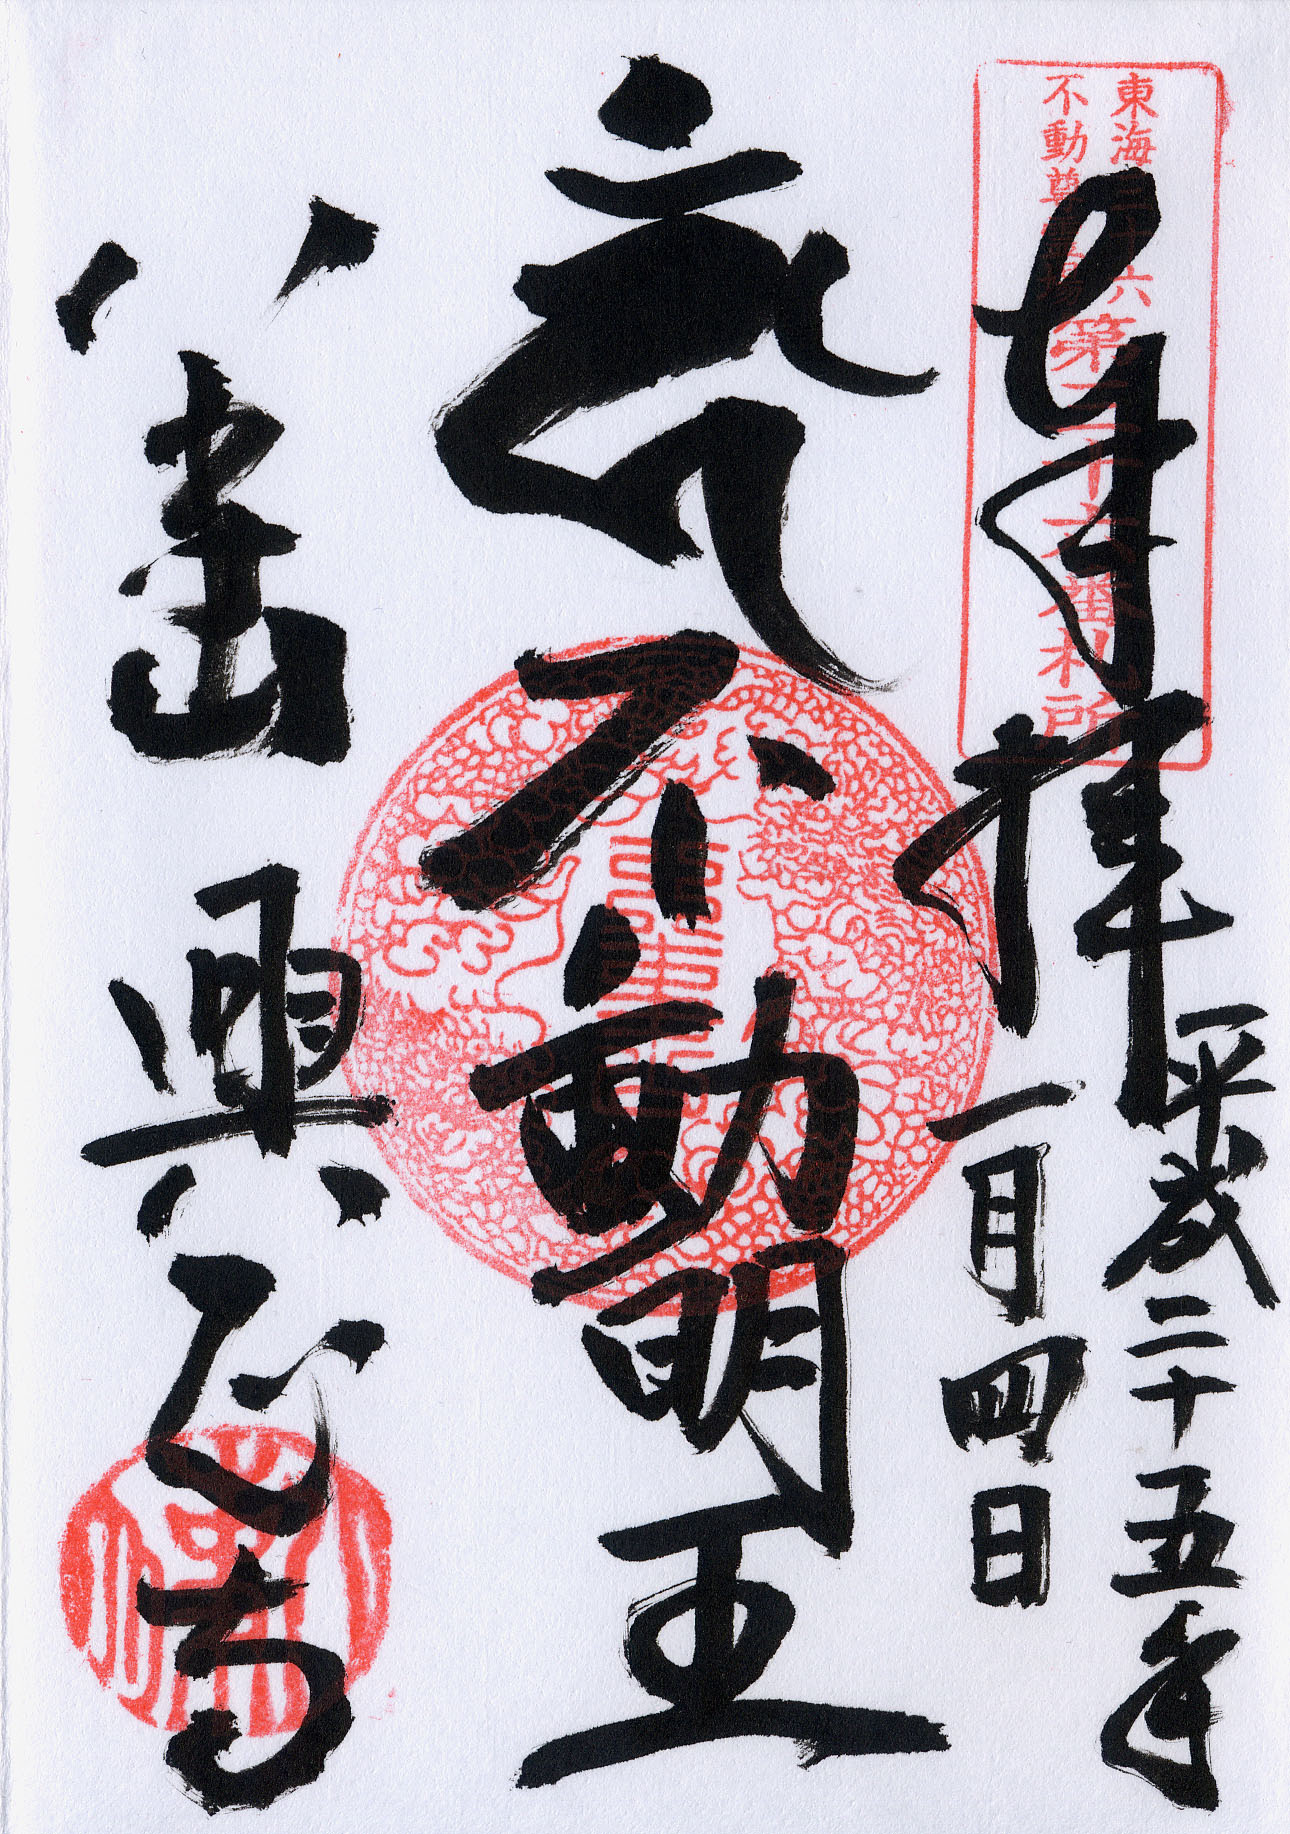 東海三十六
不動尊霊場
第三十六番札所
奉拝
平成二十五年
一月四日
不動明王
八事山
興正寺